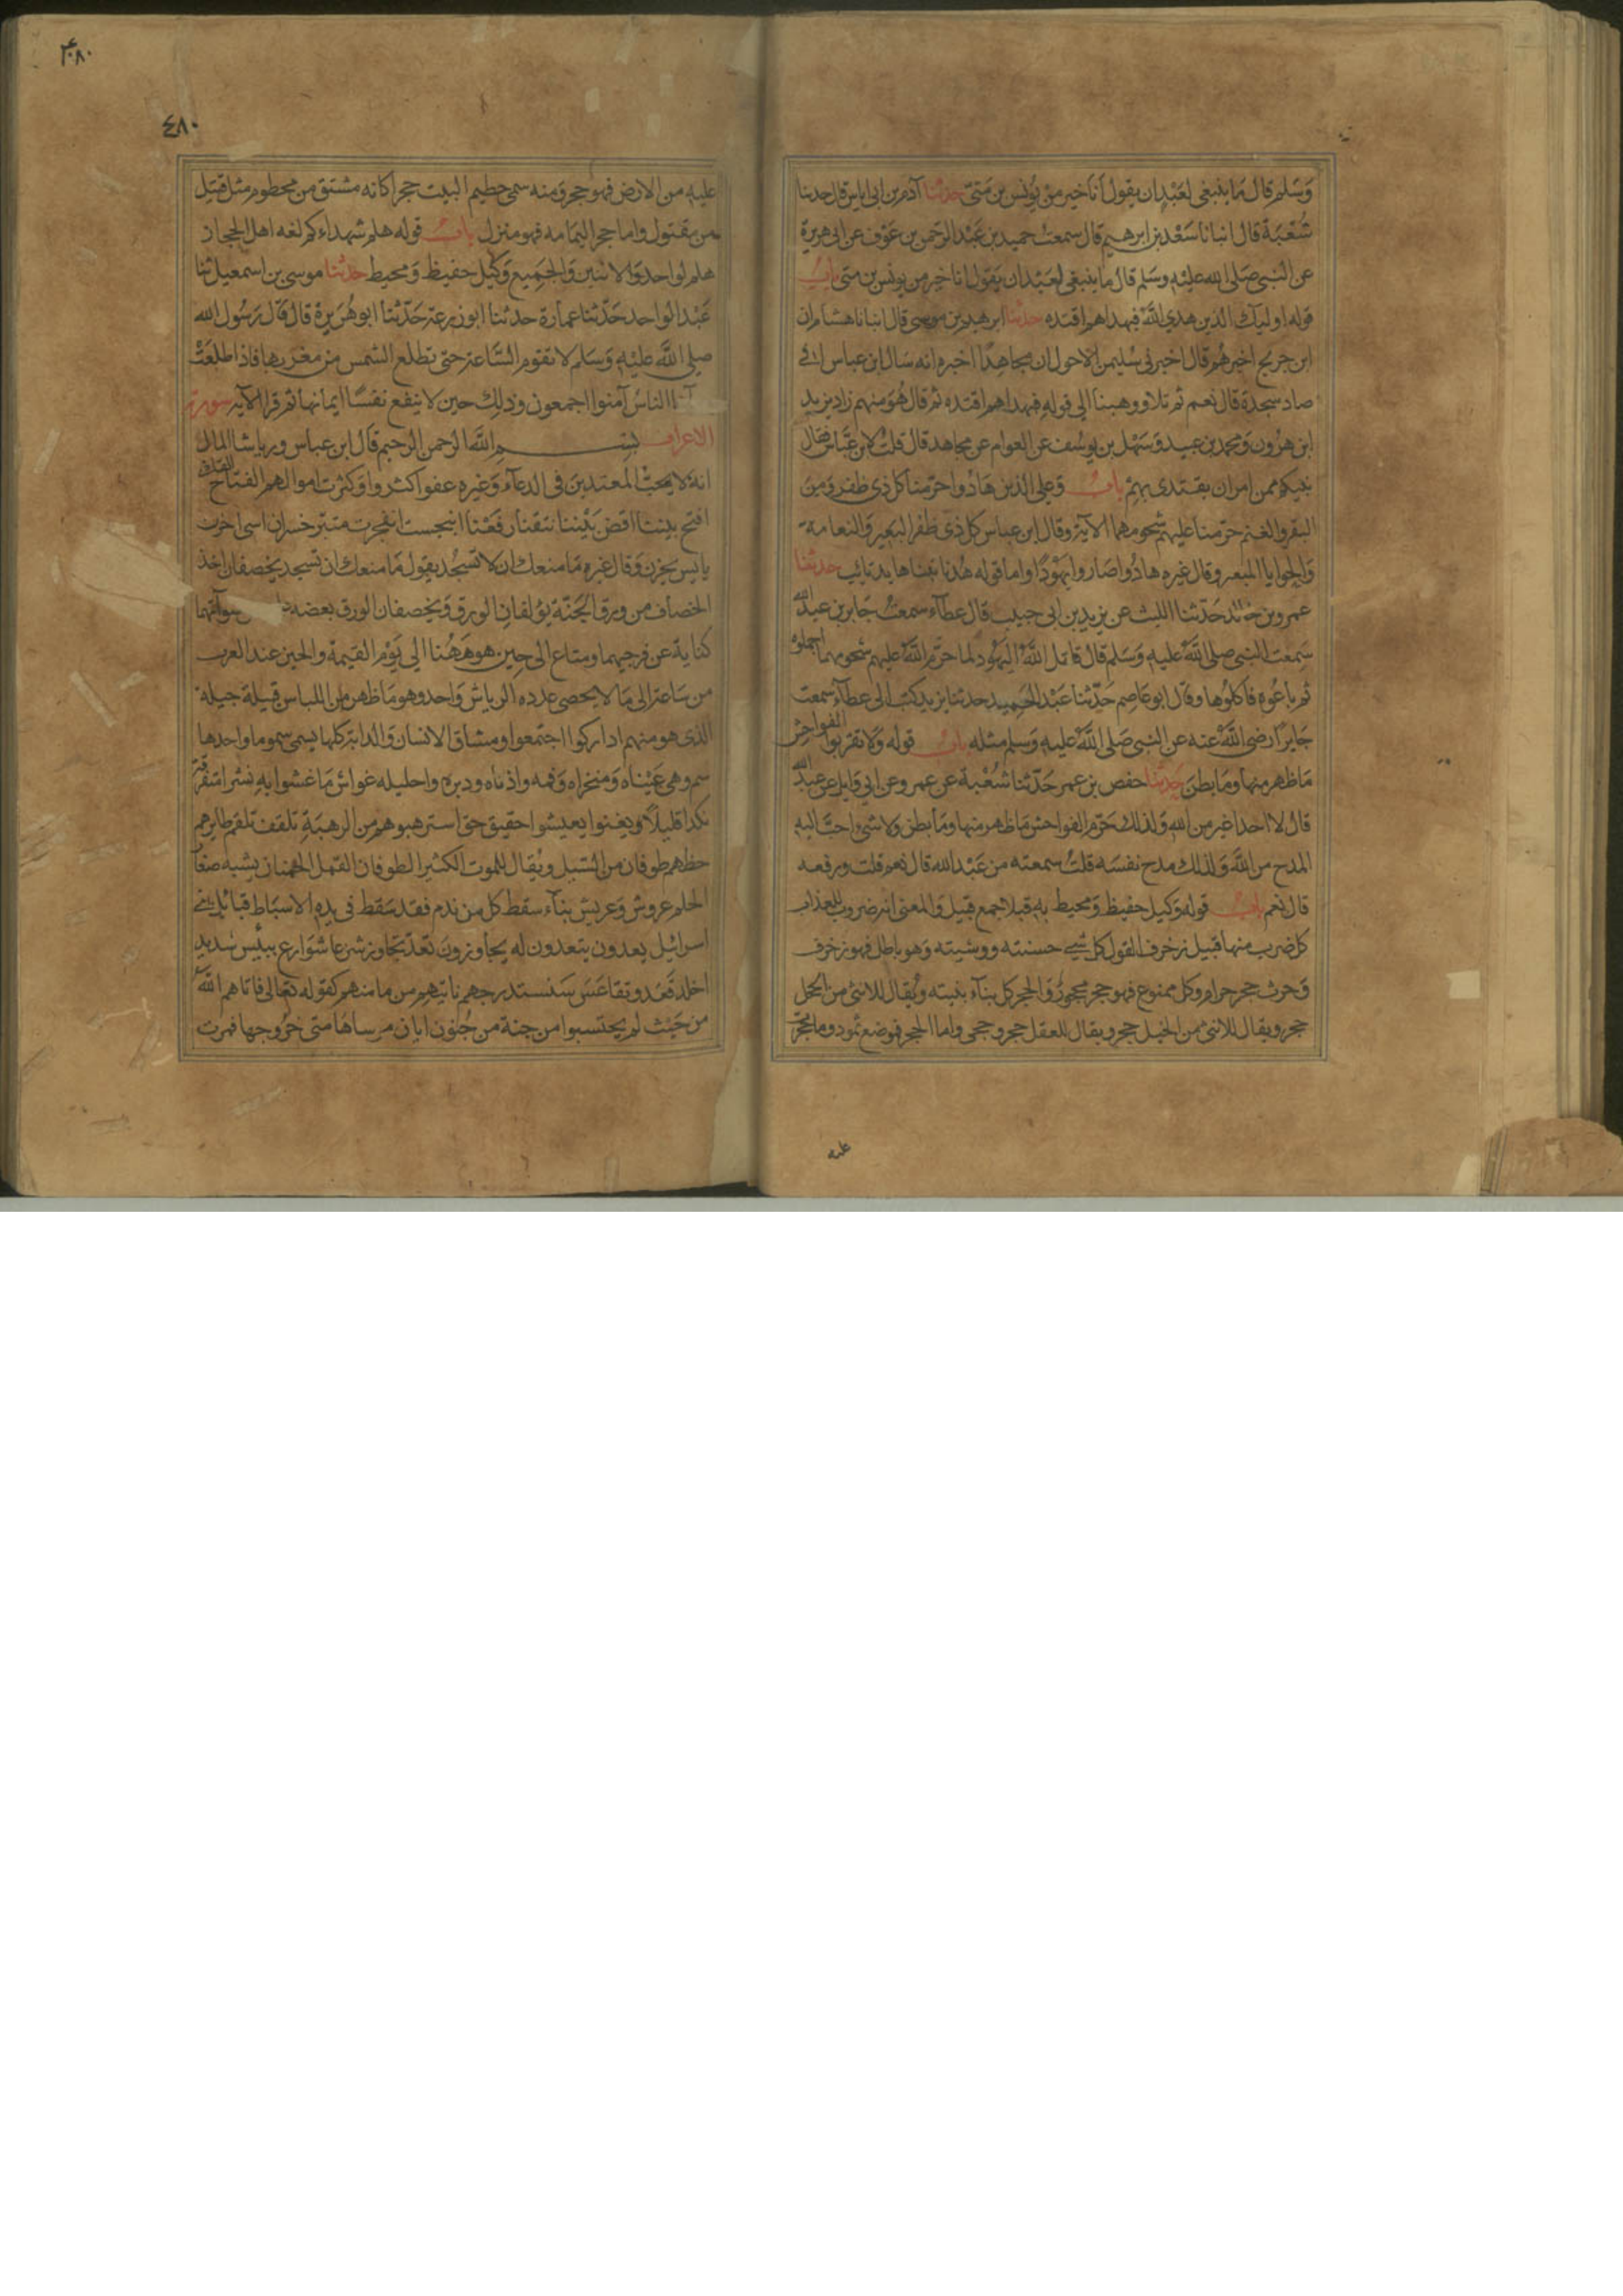 وسلم قال ما ينبغي لعبد ان يقول انا خير من يونس بن متى حدثنا آدم بن ابي اياس قال حدثنا
شعبة قال انبانا سعد بن ابرهيم قال سمعت حميد بن عبد الرحمن بن عوف عن ابي هريرة
عن النبي صلى الله عليه وسلم قال ما ينبغي لعبد ان يقول انا خير من يونس بن متى باب
قوله اوليك الذين هدي الله فبهداهم اقتده حدثنا ابرهيم بن موسى قال انبانا هشام ان
ابن جريج اخبرهم قال اخبرني سليمن الاحول ان مجاهدا اخبره انه سال ابن عباس افي
صاد سجدة قال نعم ثم تلا ووهبنا الي قوله فبهداهم اقتده ثم قال هو منهم زاد يزيد
ابن هرون ومحمد بن عبيد وسهل بن يوسف عن العوام عن مجاهد قال قلت لابن عباس فقال
نبيكم ممن امر ان يقتدى بهم باب وعلى الذين هادوا حرمنا كل ذى ظفر ومن
البقر والغنم حرمنا عليهم شحومهما الآية وقال ابن عباس كل ذى ظفر البعير والنعامة
والحوايا المبعر وقال غيره هادوا صاروا يهودا واما قوله هدنا تبنا هايد تائب حدثنا
عمرو بن خالد حدثنا الليث عن يزيد بن ابى حبيب قال عطاء سمعت جابر بن عبد الله
سمعت النبي صلى الله عليه وسلم قال قاتل الله اليهود لما حرم الله عليهم شحومهما اجملوه
ثم باعوه فاكلوها وقال ابو عاصم حدثنا عبد الحميد حدثنا يزيد كتب الى عطاء سمعت
جابرا رضى الله عنه عن النبي صلى الله عليه وسلم مثله باب قوله ولا تقربوا الفواحش
ما ظهر منها وما بطن حدثنا حفص بن عمر حدثنا شعبة عن عمرو عن ابي وايل عن عبد الله
قال لا احد اغير من الله ولذلك حرم الفواحش ما ظهر منها وما بطن ولا شى احب اليه
المدح من الله ولذلك مدح نفسه قلت سمعته من عبد الله قال نعم قلت ورفعه
قال نعم باب قوله وكيل حفيظ ومحيط به قبلا جمع قبيل والمعنى انه ضروب للعذاب
كل ضرب منها قبيل زخرف القول كل شي حسنته ووشيته وهو باطل فهو زخرف
وحرث حجر حرام وكل ممنوع فهو حجر محجور والحجر كل بناء بنيته ويقال للانثى من الخيل
حجر ويقال للانثى من الخيل حجر ويقال للعقل حجر وحجى واما الحجر فموضع ثمود وما حجر
عليه
٤٨٠
عليه من الارض فهو حجر ومنه سمى حطيم البيت حجرا كانه مشتق من محطوم مثل قتيل
من مقتول واما حجر اليمامه فهو منزل باب قوله هلم شهداءكم لغه اهل الحجاز
هلم لواحد والاثنين والجميع وكيل حفيظ ومحيط حدثنا موسى بن اسمعيل ثنا
عبد الواحد حدثنا عمارة حدثنا ابو زرعة حدثنا ابو هريرة قال قال رسول الله
صلى الله عليه وسلم لا تقوم الساعة حتى تطلع الشمس من مغربها فاذا طلعت
الناس آمنوا اجمعون وذلك حين لا ينفع نفسا ايمانها ثم قرا الآية سورة
الاعراف بسم الله الرحمن الرحيم قال ابن عباس ورياشا المال
انه لا يحب المعتدين في الدعاء وغيره عفوا كثروا وكثرت اموالهم الفتاح القاضى
افتح بيننا اقض بيننا نتقنا رفعنا انبجست انفجرت متبر خسران اسى احزن
ياتس يحزن وقال غيره ما منعك ان لا تسجد يقول ما منعك ان تسجد يخصفان اخذ
الخصاف من ورق الجنة يؤلفان الورق ويخصفان الورق بعضه سوآتهما
كناية عن فرجيهما ومتاع الى حين هو ههنا الي يوم القيمة والحين عند العرب
من ساعة الى ما لا يحصى عدده الرياش واحد وهو ما ظهر من اللباس قبيلة جيلة
الذى هو منهم اداركوا اجتمعوا ومشاق الانسان والدابة كلها يسمى سموما واحدها
سم وهى عيناه ومنخراه وفمه واذناه ودبره واحليله غواش ما غشوا به نشرا متفرقة
نكدا قليلا ويغنوا يعيشوا حقيق حق استرهبوهم من الرهبة تلقف تلقم طايرهم
حظهم طوفان من السيل ويقال للموت الكثير الطوفان القمل الحمنان يشبه صغار
الحلم عروش وعريش بناء سقط كل من ندم فقد سقط في يده الاسباط قبايل بني
اسرائيل يعدون يتعدون له يجاوزون تعد تجاوز شرعا شوارع بيئس شديد
اخلد قعد وتقاعس سنستدرجهم ناتيهم من مامنهم كقوله تعالى فاتاهم الله
من حيث لم يحتسبوا من جنة من جنون ايان مرساها متى خروجها فمرت